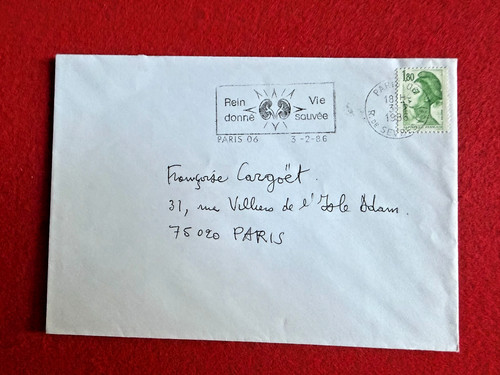 Rein Vie
donne sauvée
PARIS 06 3-2-86
1,80
PARIS 06
18H
3-2
1986
R. DE SEVRES
Françoise Cargoët.
31, rue Villiers de l'Isle Adam.
75020 PARIS